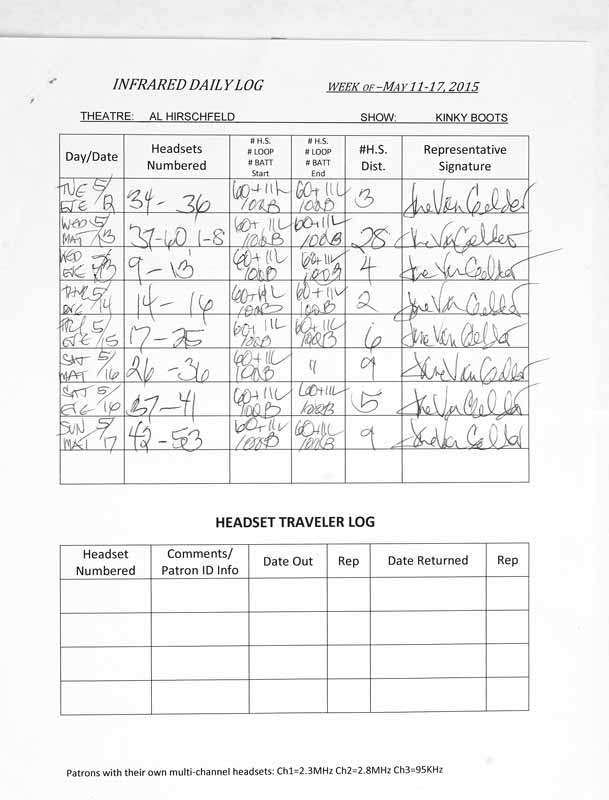 INFRARED DAILY LOG WEEK OF –MAY 11-17, 2015
THEATRE: AL HIRSCHFELD SHOW: KINKY BOOTS
Day/Date Headsets Numbered # H.S. # LOOP # BATT Start # H.S. # LOOP # BATT End #H.S. Dist. Representative Signature
TUE 5/12 EVE 34 - 36 60+11L 100B 60+11L 100B 3 Jane Van Gelder
WED 5/13 MAT 37-60 1-8 60+11L 100B 60+11L 100B 28 Jane Van Gelder
WED 5/13 EVE 9 - 13 60+11L 100B 60+11L 100B 4 Jane Van Gelder
THU 5/14 EVE 14 - 16 60+11L 100B 60+11L 100B 2 Jane Van Gelder
FRI 5/15 EVE 17 - 25 60+11L 100B 60+11L 100B 6 Jane Van Gelder
SAT 5/16 MAT 26 - 36 60+11L 100B " 9 Jane Van Gelder
SAT 5/16 EVE 37 - 41 60+11L 100B 60+11L 100B 5 Jane Van Gelder
SUN 5/17 MAT 42 - 53 60+11L 100B 60+11L 100B 9 Jane Van Gelder
HEADSET TRAVELER LOG
Headset Numbered Comments/ Patron ID Info Date Out Rep Date Returned Rep
Patrons with their own multi-channel headsets: Ch1=2.3MHz Ch2=2.8MHz Ch3=95KHz